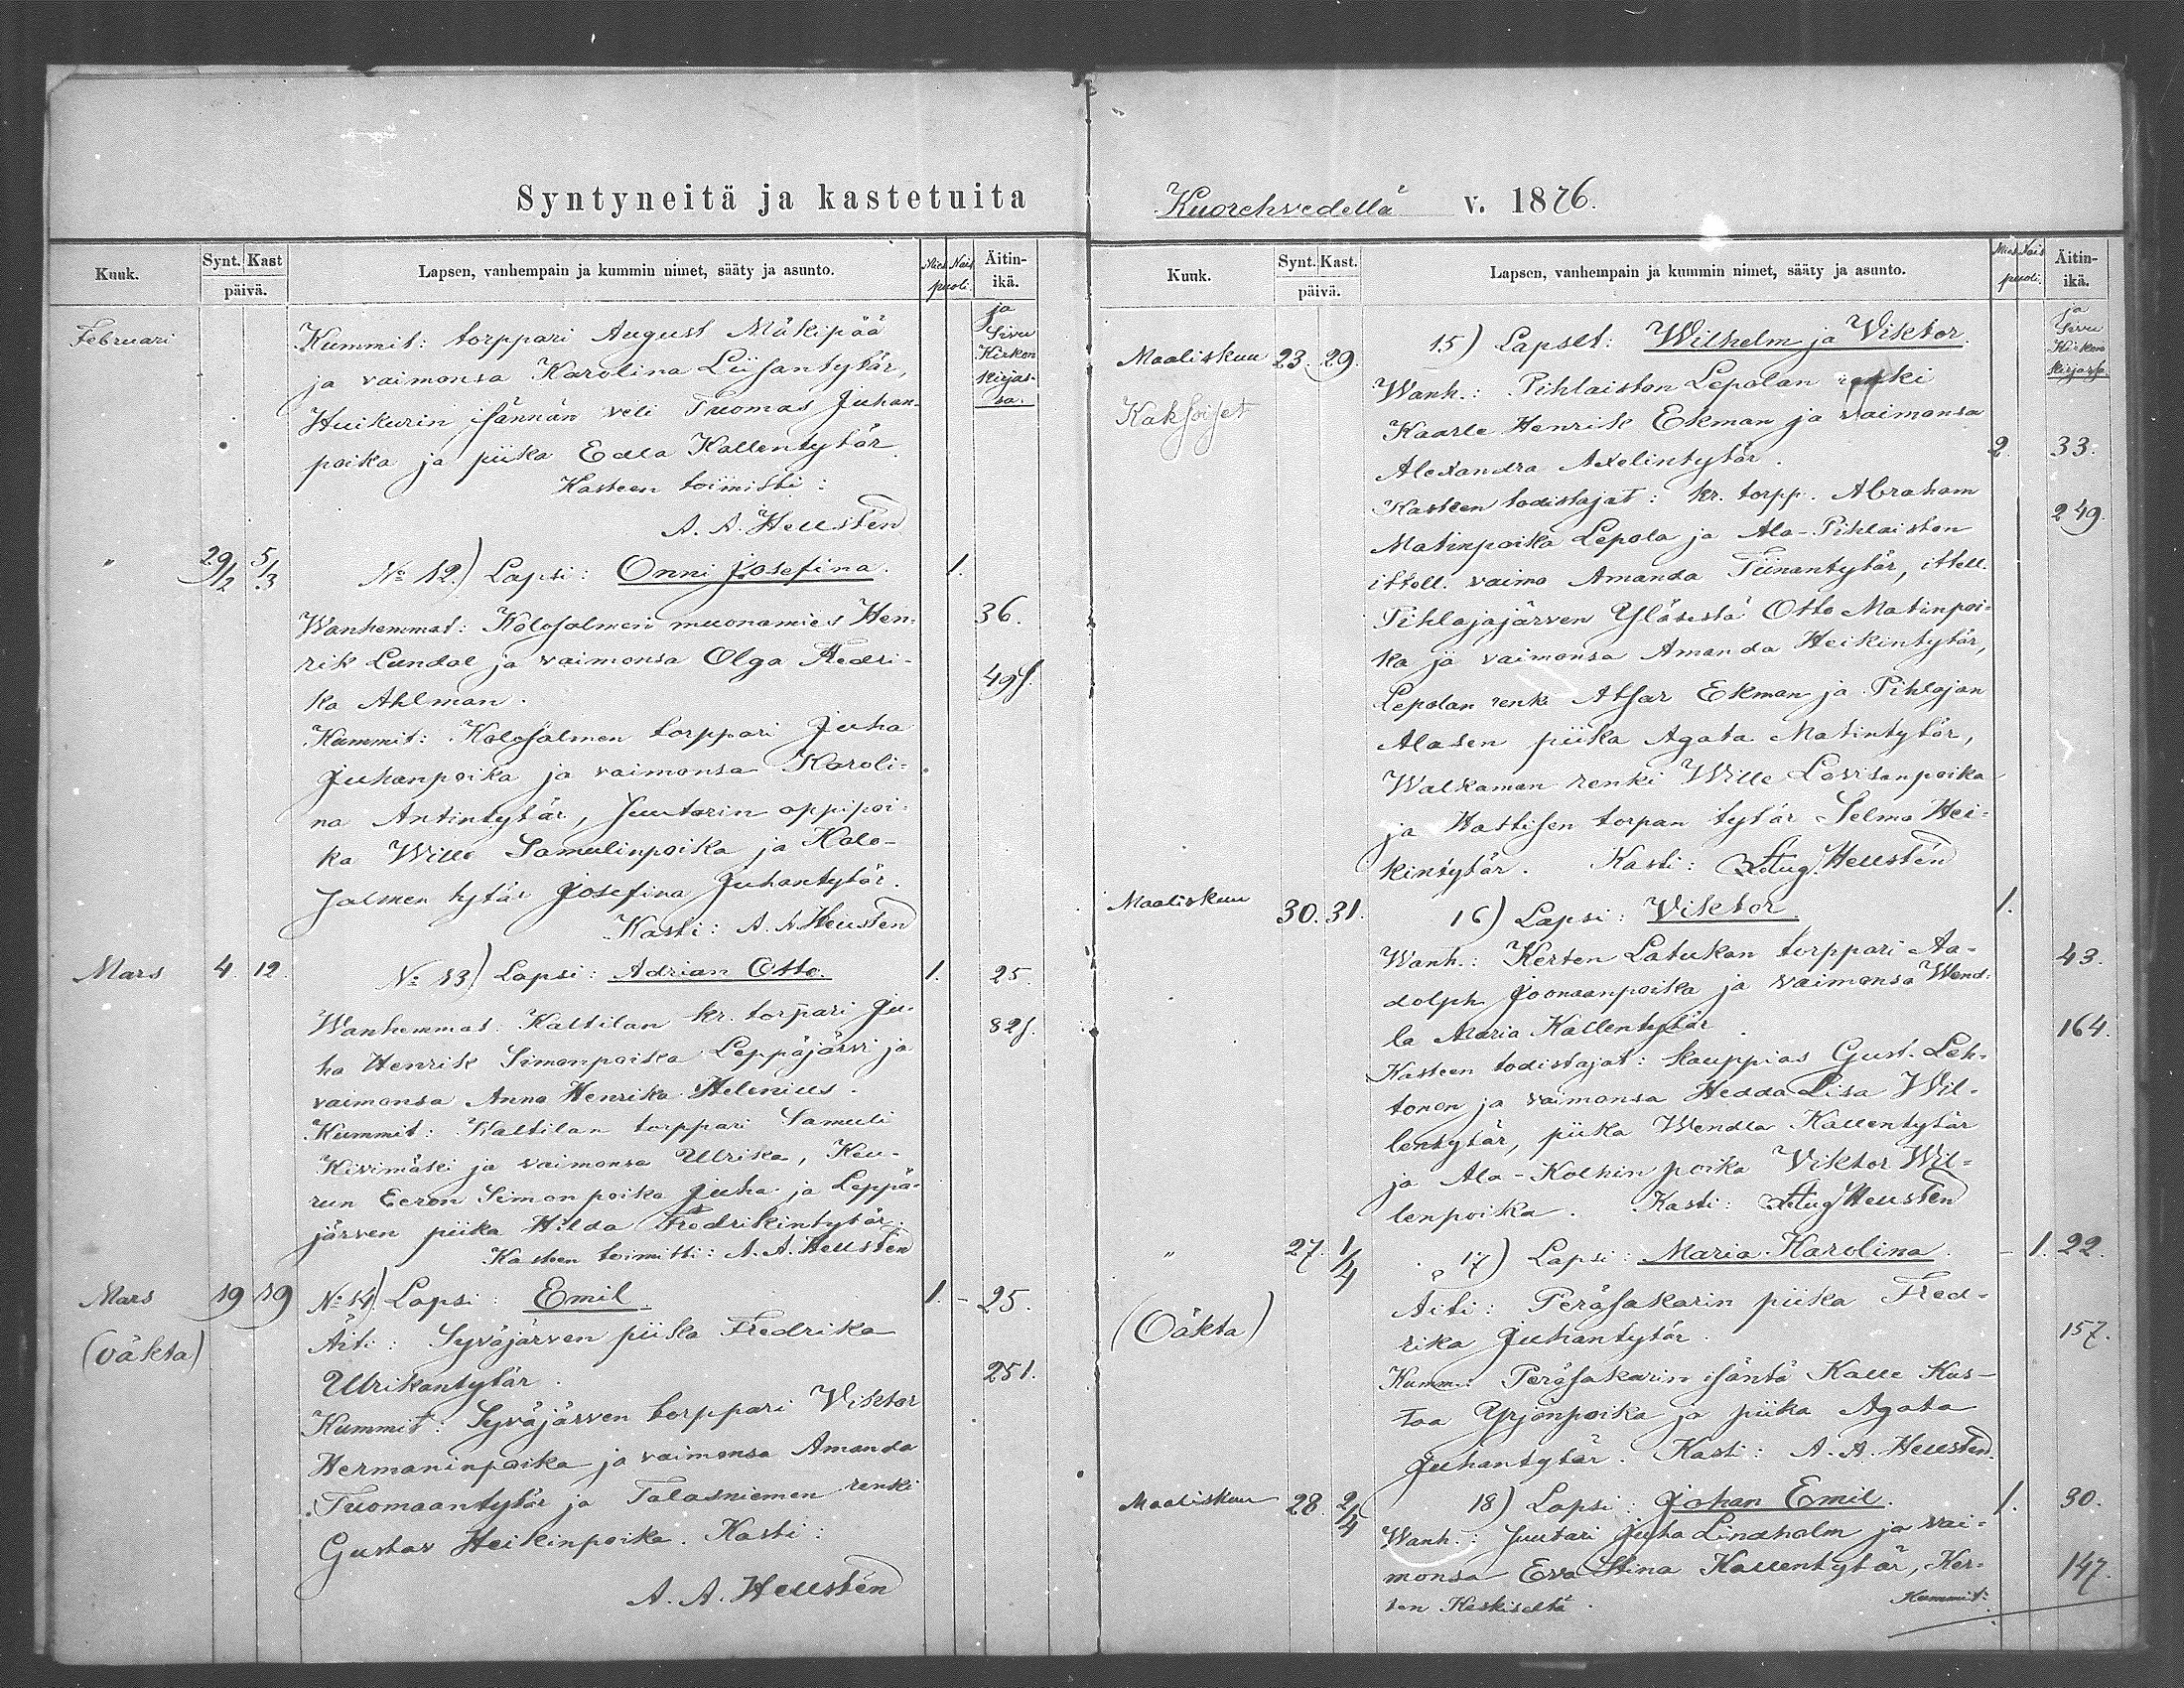 Syntyneitä ja kastetuita
Kuuk.
Synt. Kast
päivä.
Lapsen, vanhempain ja kummin nimet, sääty ja asunto.
Mies Nais
puoli.
Äitin-
ikä.
ja
Sivu
Kirkon
kirjas-
sa.
Februari
Kummit: torppari August Mäkipää
ja vaimonsa Karolina Liisantytär,
Huikurin isännän veli Tuomas Juhan-
poika ja piika Edla Kallentytär.
Kasteen toimitti:
A. A. Hellstén
" 29/2 5/3 No 12.) Lapsi: Onni Josefina. 1.
Wanhemmat: Kolosalmen muonamies Hen- 36.
rik Lundal ja vaimonsa Olga Fredri-
ka Ahlman. 498.
Kummit: Kolosalmen torppari Juha
Juhanpoika ja vaimonsa Karoli-
na Antintytär, Suutarin oppipoi-
ka Wille Samulinpoika ja Kolo-
salmen tytär Josefina Juhantytär.
Kasti: A. A. Hellstén
Mars 4 12. No 13) Lapsi: Adrian Otto. 1. 25.
Wanhemmat: Kaltilan kr. torpari Ju- 828.
ha Henrik Simonpoika Leppäjärvi ja
vaimonsa Anna Henrika Helenius.
Kummit: Kaltilan torppari Samuli
Kivimäki ja vaimonsa Ulrika, Keu-
run Eeron Simonpoika Juha ja Leppä-
järven piika Hilda Fredrikintytär.
Kasteen toimitti: A. A. Hellstén
Mars 19 19 No 14) Lapsi: Emil. 1. - 25.
(oäkta) Äiti: Syväjärven piika Fredrika
Ulrikantytär. 251.
Kummit: Syväjärven torppari Viktor
Hermaninpoika ja vaimonsa Amanda
Tuomaantytär ja Talasniemen renki
Gustav Heikinpoika. Kasti:
A. A. Hellstén
Kuorehvedellä v. 1876.
Kuuk.
Synt. Kast.
päivä.
Lapsen, vanhempain ja kummin nimet, sääty ja asunto.
Mies Nais
puoli.
Äitin-
ikä.
ja
Sivu
Kirkon
kirjassa.
Maaliskuu 23. 29. 15) Lapset: Wilhelm ja Viktor.
Kaksoiset Wanh.: Pihlaiston Lepolan renki
Kaarle Henrik Ekman ja vaimonsa
Alexandra Axelintytär. 2. 33.
Kasteen todistajat: kr. torpp. Abraham 249.
Matinpoika Lepola ja Ala-Pihlaiston
ittell. vaimo Amanda Tiinantytär, ittell.
Pihlajajärven Yläsestä Otto Matinpoi-
ka ja vaimonsa Amanda Heikintytär,
Lepolan renki Atsar Ekman ja Pihlajan
Alasen piika Agata Matintytär,
Walkaman renki Wille Lovisanpoika
ja Hattisen torpan tytär Selma Hei-
kintytär. Kasti: Aug. Hellstén
Maaliskuu 30. 31. 16) Lapsi: Viktor 1.
Wanh.: Kerten Latukan torppari Aa- 43.
dolph Joonaanpoika ja vaimonsa Wend-
la Maria Kallentytär. 164.
Kasteen todistajat: kauppias Gust. Leh-
tonen ja vaimonsa Hedda Lisa Wil-
lentytär, piika Wendla Kallentytär
ja Ala-Kolhin poika Viktor Wil-
lenpoika. Kasti: Aug Hellstén
" 27. 1/4 17) Lapsi: Maria Karolina. - 1. 22.
(Oäkta) Äiti: Peräsakarin piika Fred-
rika Juhantytär. 157.
Kumm: Peräsakarin isäntä Kalle Kus-
taa Yrjönpoika ja piika Agata
Juhantytär. Kasti: A. A. Hellstén.
Maaliskuu 28. 2/4 18) Lapsi: Johan Emil. 1. 30.
Wanh.: Suutari Juha Lindholm ja vai-
monsa Eva Stina Kallentytär, Ker- 147.
ten Keskiseltä. Kummit: